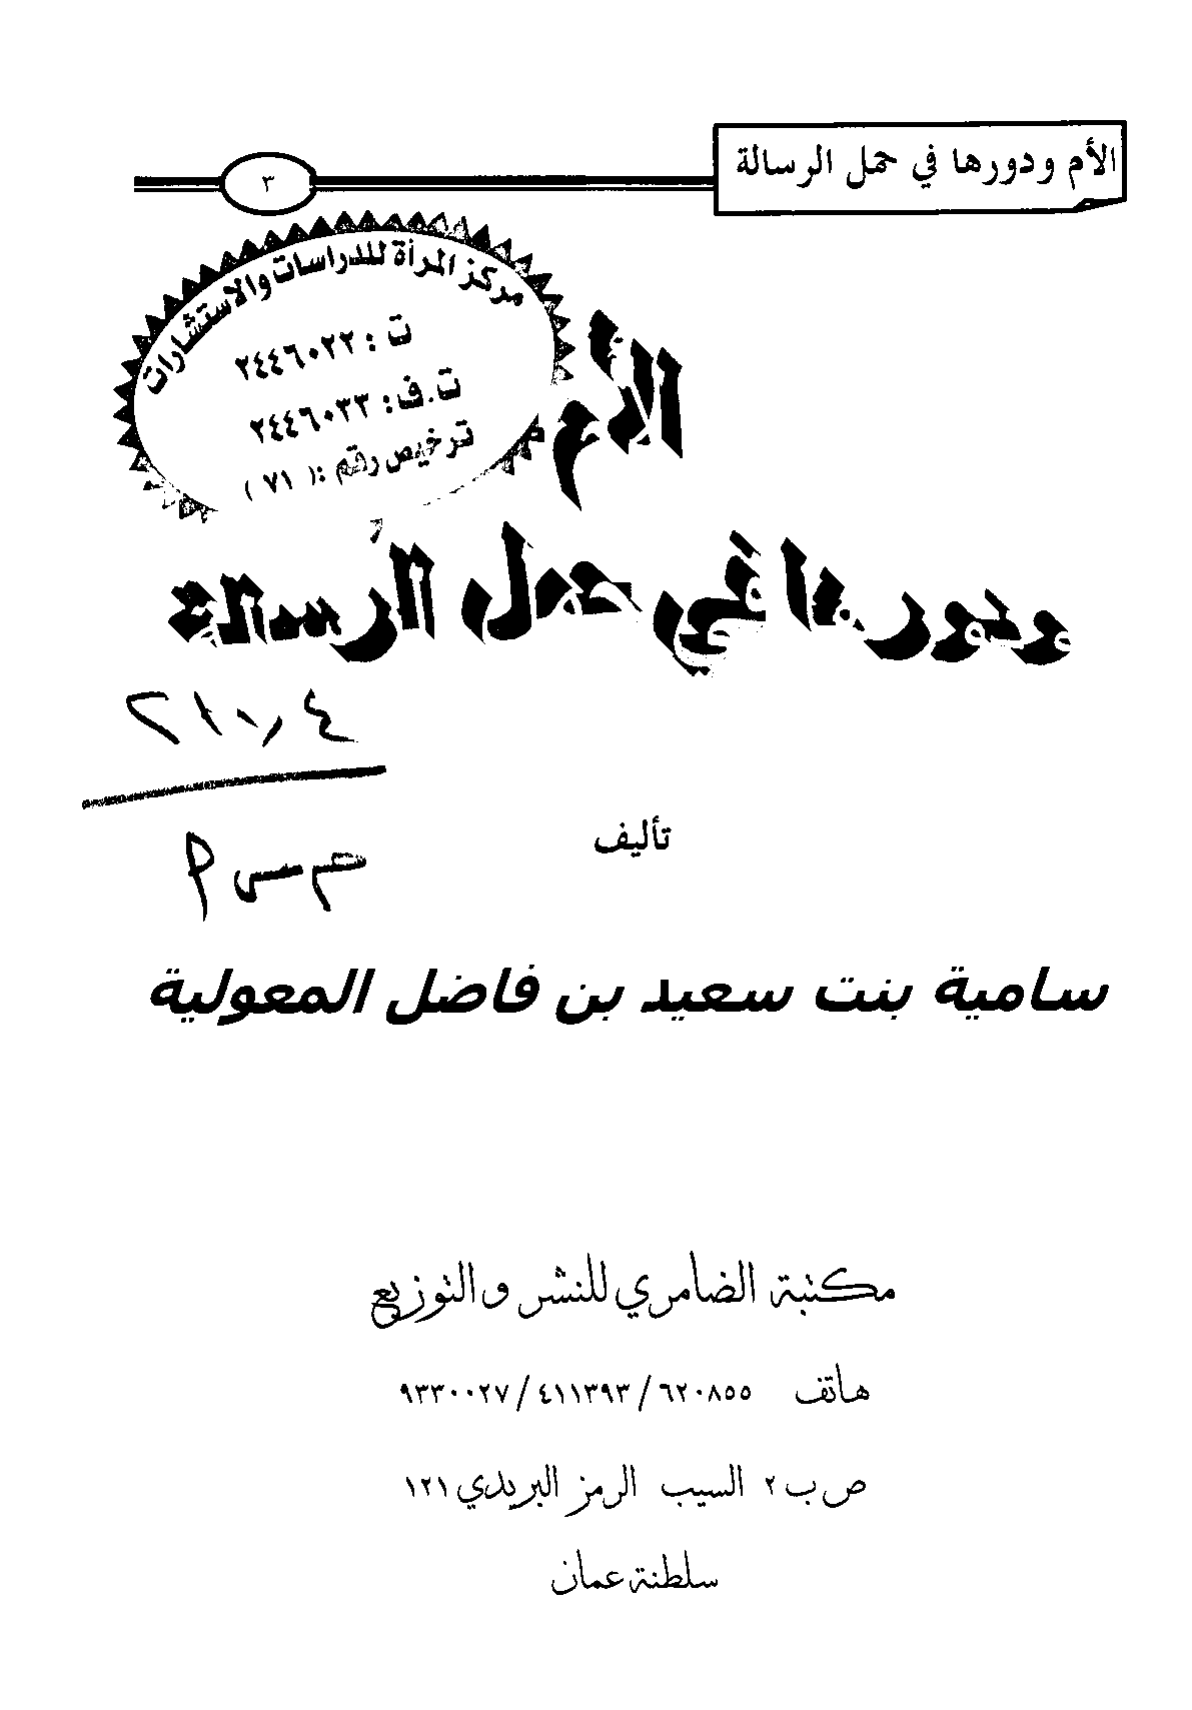 الأم ودورها في حمل الرسالة
٣
مركز المرأة للدراسات والاستشارات
ت : ٢٤٤٦٠٢٢
ت.ف: ٢٤٤٦٠٣٣
ترخيص رقم :( ٧١ )
الأم
ودورها في حمل الرسالة
تأليف
سامية بنت سعيد بن فاضل المعولية
مكتبة الضامري للنشر والتوزيع
هاتف ٦٢٠٨٥٥ / ٤١١٣٩٣ / ٩٣٣٠٠٢٧
ص ب ٢ السيب الرمز البريدي ١٢١
سلطنة عمان